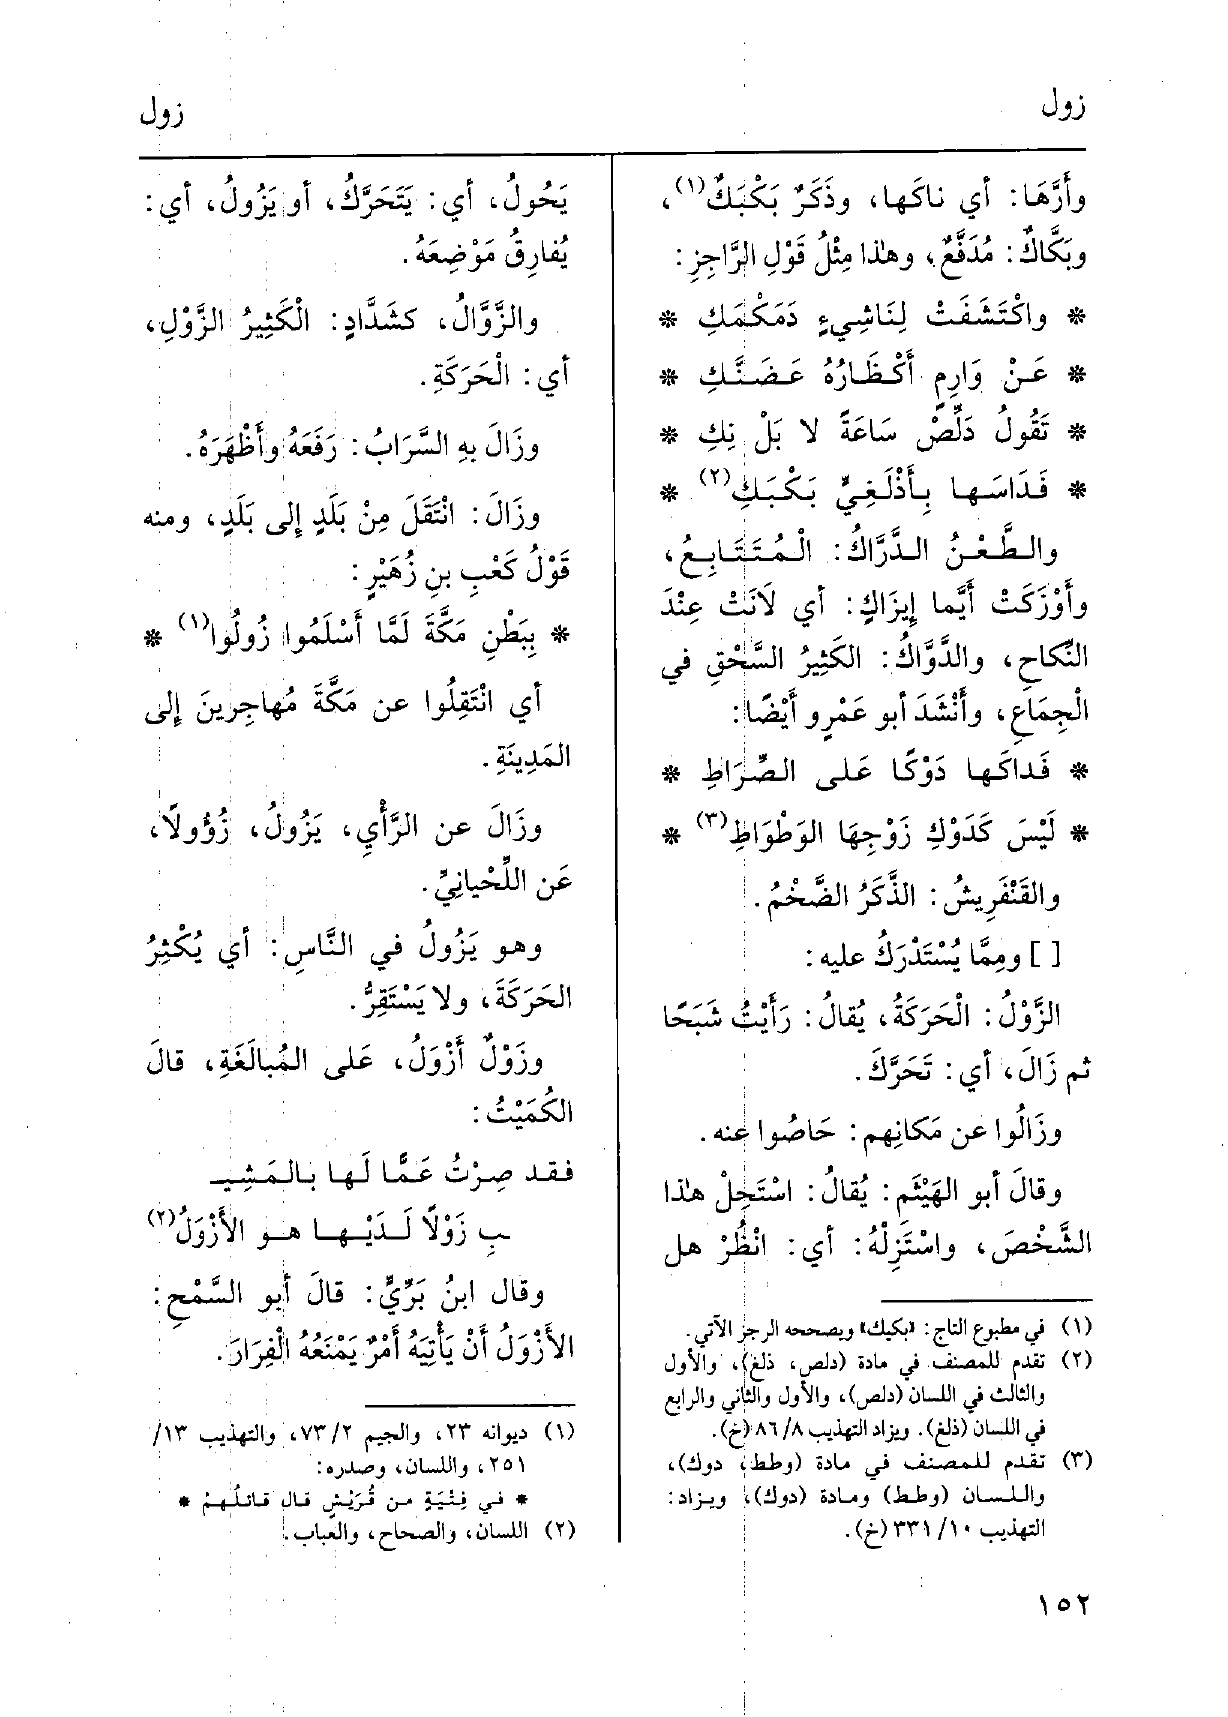 زول
زول
وأَرَّهَا: أي ناكَها، وذَكَرٌ بَكْبَكٌ(١)،
وبَكَّاكٌ: مُدَفَّعٌ، وهٰذا مِثْلُ قَوْلِ الرَّاجِزِ:
* واكْتَشَفَتْ لِنَاشِيءٍ دَمَكْمَكِ *
* عَنْ وَارِمٍ أَكْظَارُهُ عَضَنَّكِ *
* تَقُولُ دَلِّصْ سَاعَةً لا بَلْ نِكِ *
* فَدَاسَها بِأَذْلَغِيٍّ بَكْبَكِ(٢) *
والطَّعْنُ الدَّرَّاكُ: الْمُتَتَابِعُ،
وأَوْزَكَتْ أَيَّما إِيزَاكٍ: أي لَانَتْ عِنْدَ
النِّكاحِ، والدَّوَّاكُ: الكَثِيرُ السَّحْقِ في
الْجِمَاعِ، وأَنْشَدَ أبو عَمْرٍو أَيْضًا:
* فَداكَها دَوْكًا عَلى الصِّرَاطِ *
* لَيْسَ كَدَوْكِ زَوْجِهَا الوَطْوَاطِ(٣) *
والقَنْفَرِيشُ: الذَّكَرُ الضَّخْمُ.
[ ] ومِمَّا يُسْتَدْرَكُ عليه:
الزَّوْلُ: الْحَرَكَةُ، يُقالُ: رَأَيْتُ شَبَحًا
ثم زَالَ، أي: تَحَرَّكَ.
وزَالُوا عن مَكانِهم: حَاصُوا عنه.
وقالَ أبو الهَيْثَمِ: يُقالُ: اسْتَحِلْ هٰذا
الشَّخْصَ، واسْتَزِلْهُ: أي: انْظُرْ هل
(١) في مطبوع التاج: «بكيك» ويصححه الرجز الآتي.
(٢) تقدم للمصنف في مادة (دلص، ذلغ)، والأول
والثالث في اللسان (دلص)، والأول والثاني والرابع
في اللسان (ذلغ). ويزاد التهذيب ٨٦/٨ (خ).
(٣) تقدم للمصنف في مادة (وطط، دوك)،
واللسان (وطط) ومادة (دوك)، ويزاد:
التهذيب ٣٣١/١٠ (خ).
يَحُولُ، أي: يَتَحَرَّكُ، أو يَزُولُ، أي:
يُفارِقُ مَوْضِعَهُ.
والزَّوَّالُ، كشَدَّادٍ: الْكَثِيرُ الزَّوْلِ،
أي: الْحَرَكَةِ.
وزَالَ بهِ السَّرَابُ: رَفَعَهُ وأَظْهَرَهُ.
وزَالَ: انْتَقَلَ مِنْ بَلَدٍ إلى بَلَدٍ، ومنه
قَوْلُ كَعْبِ بنِ زُهَيْرٍ:
* بِبَطْنِ مَكَّةَ لَمَّا أَسْلَمُوا زُولُوا(١) *
أي انْتَقِلُوا عن مَكَّةَ مُهاجِرينَ إلى
المَدِينَةِ.
وزَالَ عن الرَّأْيِ، يَزُولُ، زُؤُولًا،
عَن اللِّحْيانِيِّ.
وهو يَزُولُ في النَّاسِ: أي يُكْثِرُ
الحَرَكَةَ، ولا يَسْتَقِرُّ.
وزَوْلٌ أَزْوَلُ، عَلى المُبالَغَةِ، قالَ
الكُمَيْتُ:
فقد صِرْتُ عَمًّا لَها بِالمَشِيـ
ـبِ زَوْلًا لَدَيْها هو الأَزْوَلُ(٢)
وقال ابنُ بَرِّيٍّ: قالَ أبو السَّمْحِ:
الأَزْوَلُ أَنْ يَأْتِيَهُ أَمْرٌ يَمْنَعُهُ الْفِرَارَ.
(١) ديوانه ٢٣، والجيم ٧٣/٢، والتهذيب ١٣/
٢٥١، واللسان، وصدره:
* في فِتْيَةٍ من قُرَيْشٍ قال قائلُهمْ *
(٢) اللسان، والصحاح، والعباب.
١٥٢